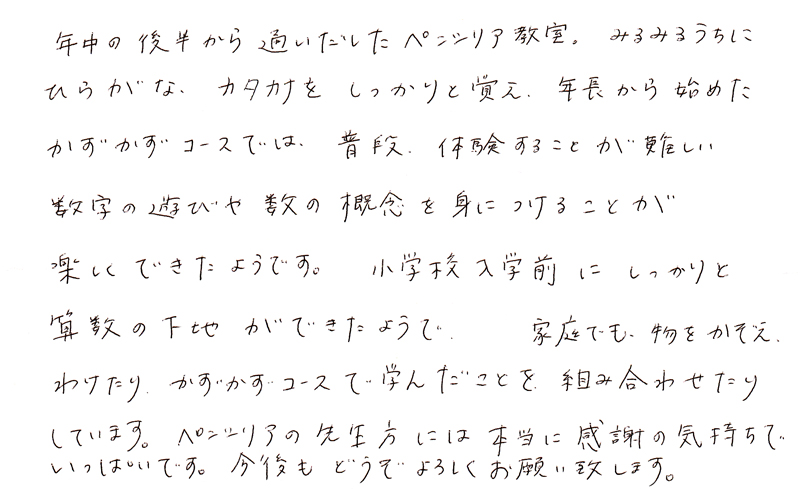 年中の後半から通いだしたペンシリア教室。みるみるうちに
ひらがな、カタカナをしっかりと覚え、年長から始めた
かずかずコースでは、普段、体験することが難しい
数字の遊びや数の概念を身につけることが
楽しくできたようです。小学校入学前にしっかりと
算数の下地ができたようで、家庭でも、物をかぞえ、
わけたり、かずかずコースで学んだことを、組み合わせたり
しています。ペンシリアの先生方には本当に感謝の気持ちで
いっぱいです。今後もどうぞよろしくお願い致します。